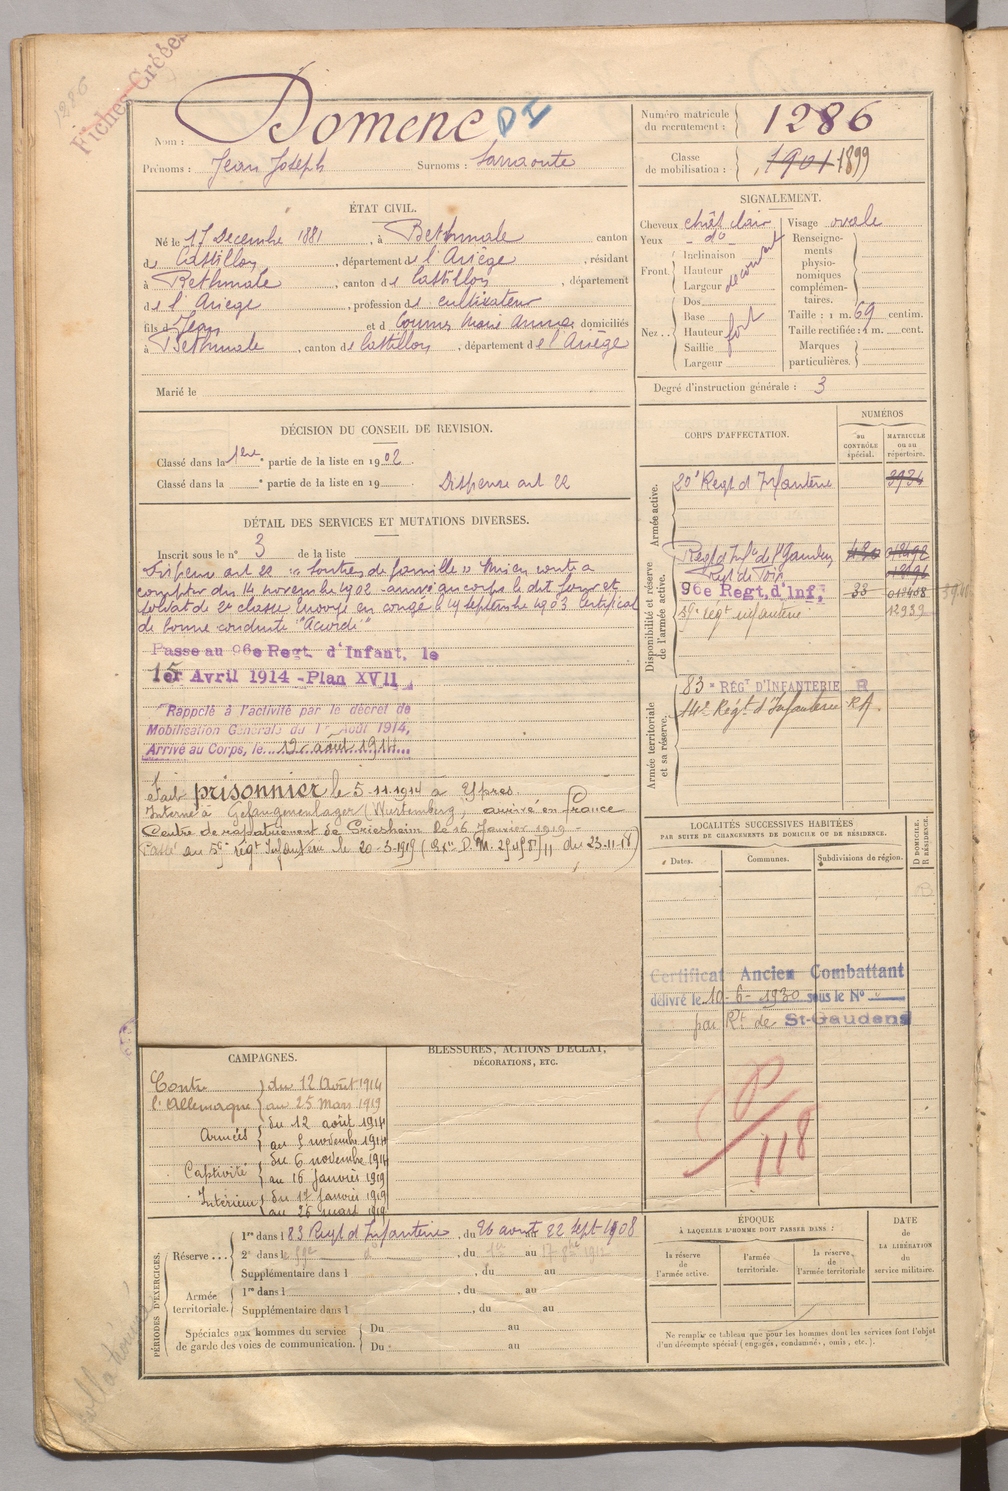 1286
Fiches Créées
Nom : Domenc DI
Prénoms : Jean Joseph Surnoms :
Numéro matricule
du recrutement : 1286
Classe
de mobilisation : 1901 1899
ÉTAT CIVIL.
Né le 17 Décembre 1881, à Bethmale canton
de Castillon, département de l'Ariège, résidant
à Bethmale, canton de Castillon, département
de l'Ariège, profession de cultivateur
fils de Jean et de Marie Anne domiciliés
à Bethmale, canton de Castillon, département de l'Ariège
Marié le
SIGNALEMENT.
Cheveux chât clair Visage ovale
Yeux - do -
Front. Inclinaison
Hauteur
Largeur
découvert
Nez.. Dos
Base
Hauteur
Saillie
Largeur
fort
Renseigne-
ments
physio-
nomiques
complémen-
taires.
Taille : 1 m. 69 centim.
Taille rectifiée : 1 m. cent.
Marques
particulières.
Degré d'instruction générale : 3
DÉCISION DU CONSEIL DE REVISION.
Classé dans la 1ère partie de la liste en 1902.
Classé dans la e partie de la liste en 19
Dispensé art 22
DÉTAIL DES SERVICES ET MUTATIONS DIVERSES.
Inscrit sous le n° 3 de la liste
Dispensé art 22 "Soutien de famille"
compter du 14 novembre 1902 arrivé au corps le dit jour et
soldat de 2e classe Envoyé en congé le 19 septembre 1903 Certificat
de bonne conduite "Accordé"
Passé au 96e Regt. d'Infant. le
15 1er Avril 1914 - Plan XVII
Rappelé à l'activité par le décret de
Mobilisation Générale du 1er Août 1914,
Arrivé au Corps, le 12 août 1914
Fait prisonnier le 5-11-1914 à Ypres.
Interné à Gefangenenlager (Wurtemberg), arrivé en France
Centre de rapatriement de Griesheim le 16 Janvier 1919 -
Passé au 59e régt Infanterie le 20-3-1919
du 23-11-18)
CORPS D'AFFECTATION.
NUMÉROS
au
CONTRÔLE
spécial.
MATRICULE
ou au
répertoire.
Armée active.
80e Regt d'Infanterie 3934
Disponibilité et réserve
de l'armée active.
Regt d'Infie de St Gaudens
Regt de Foix
96e Regt. d'Inf. 33
59e régt infanterie 12939
Armée territoriale
et sa réserve.
83e RÉGT D'INFANTERIE R
14e Régt d'Infanterie RA.
LOCALITÉS SUCCESSIVES HABITÉES
PAR SUITE DE CHANGEMENTS DE DOMICILE OU DE RÉSIDENCE.
Dates. Communes. Subdivisions de région.
D DOMICILE.
R RÉSIDENCE.
Certificat Ancien Combattant
délivré le 10-6-1930 sous le N°
par Rt de St-Gaudens
P/118
CAMPAGNES.
Contre
l'Allemagne
du 12 Août 1914
au 25 Mars 1919
Armées
du 12 août 1914
au 5 novembre 1914
Captivité
du 6 novembre 1914
au 16 janvier 1919
Intérieur
du 17 janvier 1919
au 25 mars 1919
BLESSURES, ACTIONS D'ÉCLAT,
DÉCORATIONS, ETC.
PÉRIODES D'EXERCICES.
Réserve ... 1re dans l 83 Regt d'Infanterie, du 26 août au 22 Sept 1908
2e dans le 59e do, du 1er au 17 1912
Supplémentaire dans l, du au
Armée
territoriale. 1re dans l, du au
Supplémentaire dans l, du au
Spéciales aux hommes du service
de garde des voies de communication. Du au
Du au
ÉPOQUE
À LAQUELLE L'HOMME DOIT PASSER DANS :
la réserve
de
l'armée active.
l'armée
territoriale.
la réserve
de
l'armée territoriale
DATE
de
LA LIBÉRATION
du
service militaire.
Ne remplir ce tableau que pour les hommes dont les services font l'objet
d'un décompte spécial (engagés, condamné, omis, etc.).